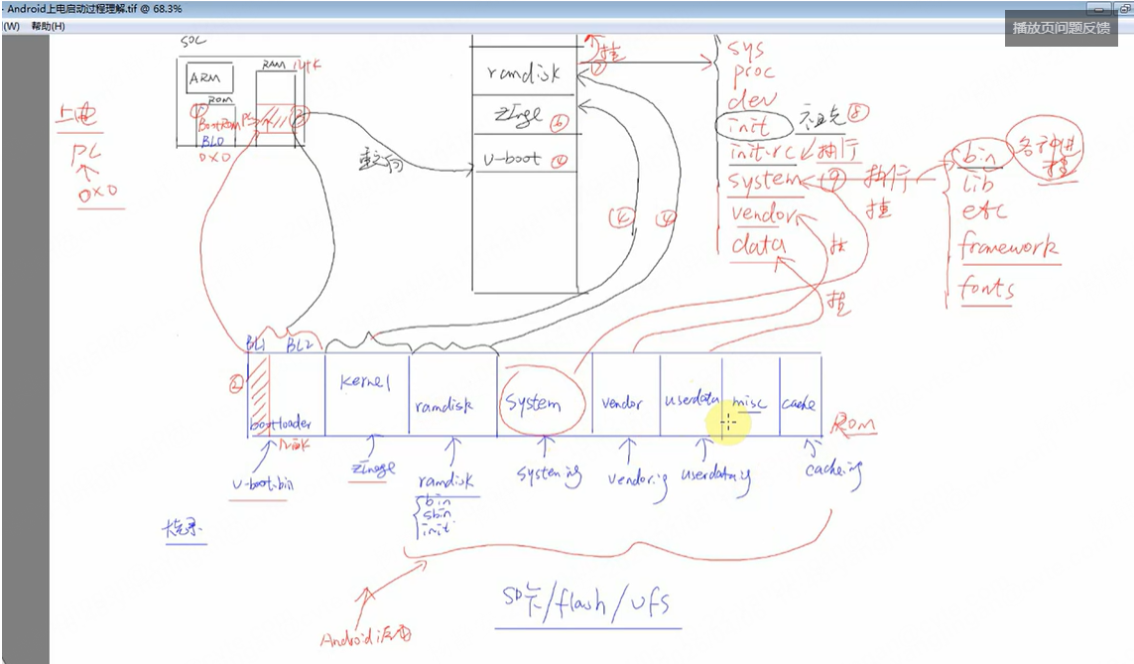 Android上电启动过程理解.tif @ 68.3%
(W) 帮助(H)
播放页问题反馈
SOC
ARM
RAM
ROM
①
BootRom
BL0
0x0
上电
PC
0x0
重定向
ramdisk
zImge ⑤
u-boot ④
⑦
挂
sys
proc
dev
init 祖先 ⑧
init.rc 执行
system ⑨ 执行
挂
vendor
挂
data
挂
bin
各种进程
lib
etc
framework
fonts
BL1 BL2
②
bootloader
kernel
ramdisk
system
vendor
userdata
misc
cache
Rom
u-boot.bin
zImage
ramdisk
bin
sbin
init
system.img
vendor.img
userdata.img
cache.img
烧录
SD卡/flash/ufs